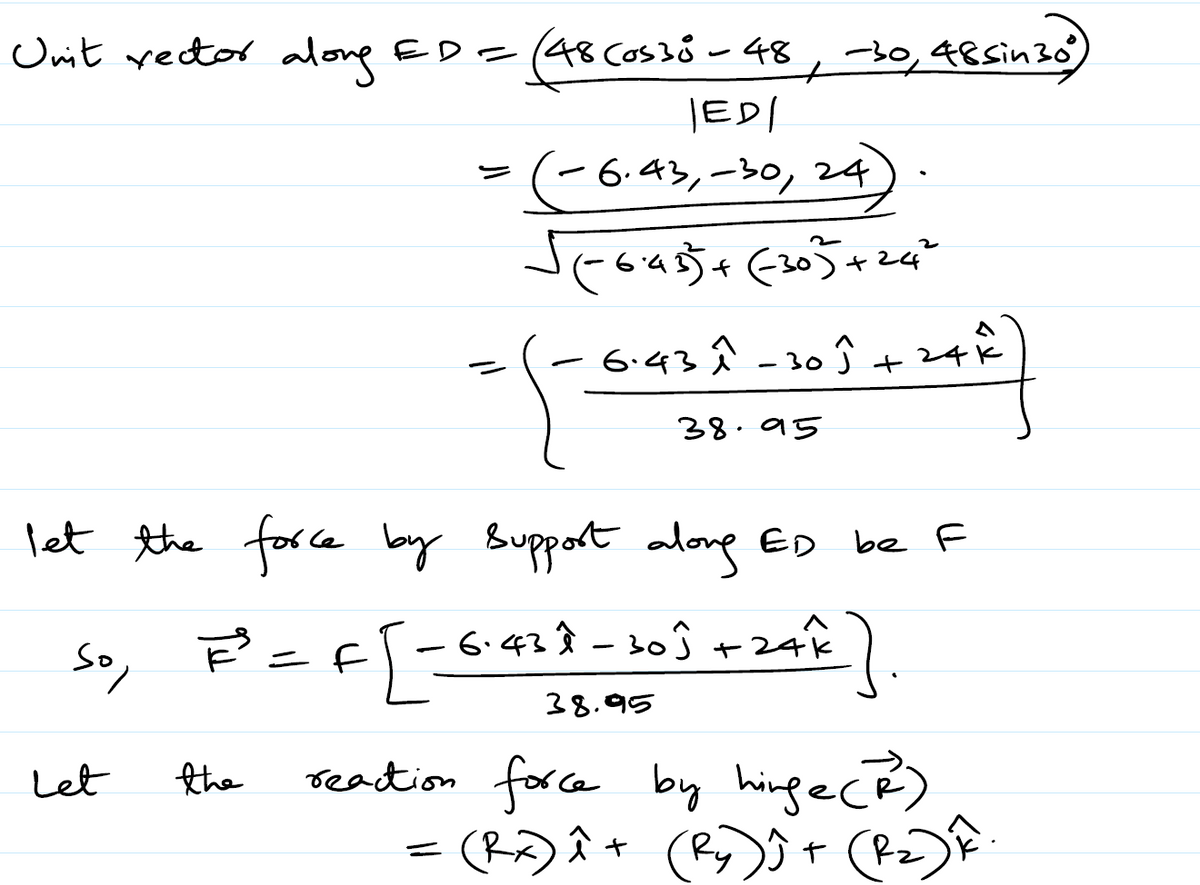 Unit vector along ED = (48 cos30° - 48, -30, 48 sin30°)
|ED|
= (-6.43, -30, 24).
√(-6.43)² + (-30)² + 24²
= { -6.43 î - 30 ĵ + 24 k̂ }
38.95
let the force by support along ED be F
So, F⃗ = F [ -6.43 î - 30 ĵ + 24 k̂ ].
38.95
Let the reaction force by hinge (R⃗)
= (Rx) î + (Ry) ĵ + (Rz) k̂.